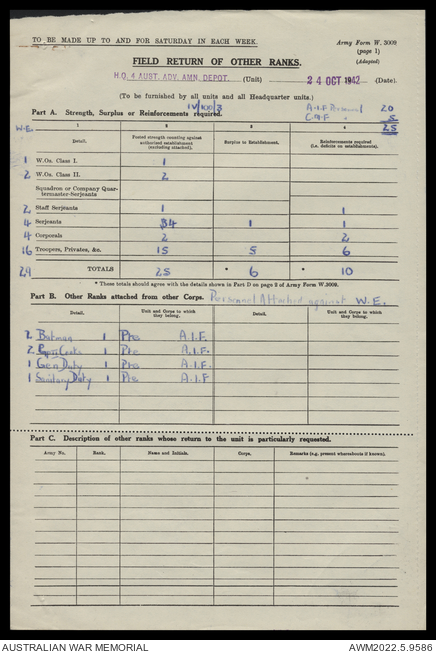 TO BE MADE UP TO AND FOR SATURDAY IN EACH WEEK.
Army Form W. 3009
(page 1)
(Adapted)
FIELD RETURN OF OTHER RANKS.
H.Q. 4 AUST. ADV. AMN. DEPOT. (Unit) 24 OCT 1942 (Date).
(To be furnished by all units and all Headquarter units.)
IV/100/3
A.I.F. Personnel 20
C.M.F. " 5
25
Part A. Strength, Surplus or Reinforcements required.
W.E. 1 2 3 4
Detail. Posted strength counting against authorized establishment (excluding attached). Surplus to Establishment. Reinforcements required (i.e. deficits on establishment).
1 W.Os. Class I. 1
2 W.Os. Class II. 2
Squadron or Company Quar-
termaster-Serjeants
2 Staff Serjeants 1 1
4 Serjeants 4 1 1
4 Corporals 2 2
16 Troopers, Privates, &c. 15 5 6
29 TOTALS 25 * 6 * 10
* These totals should agree with the details shown in Part D on page 2 of Army Form W.3009.
Part B. Other Ranks attached from other Corps. Personnel Attached against W.E.
Detail. Unit and Corps to which they belong. Detail. Unit and Corps to which they belong.
2 Batman 1 Pte A.I.F.
2 Cooks 1 Pte A.I.F.
1 Gen Duty 1 Pte A.I.F.
1 Sanitary Duty 1 Pte A.I.F
Part C. Description of other ranks whose return to the unit is particularly requested.
Army No. Rank. Name and Initials. Corps. Remarks (e.g. present whereabouts if known).
AUSTRALIAN WAR MEMORIAL AWM2022.5.9586